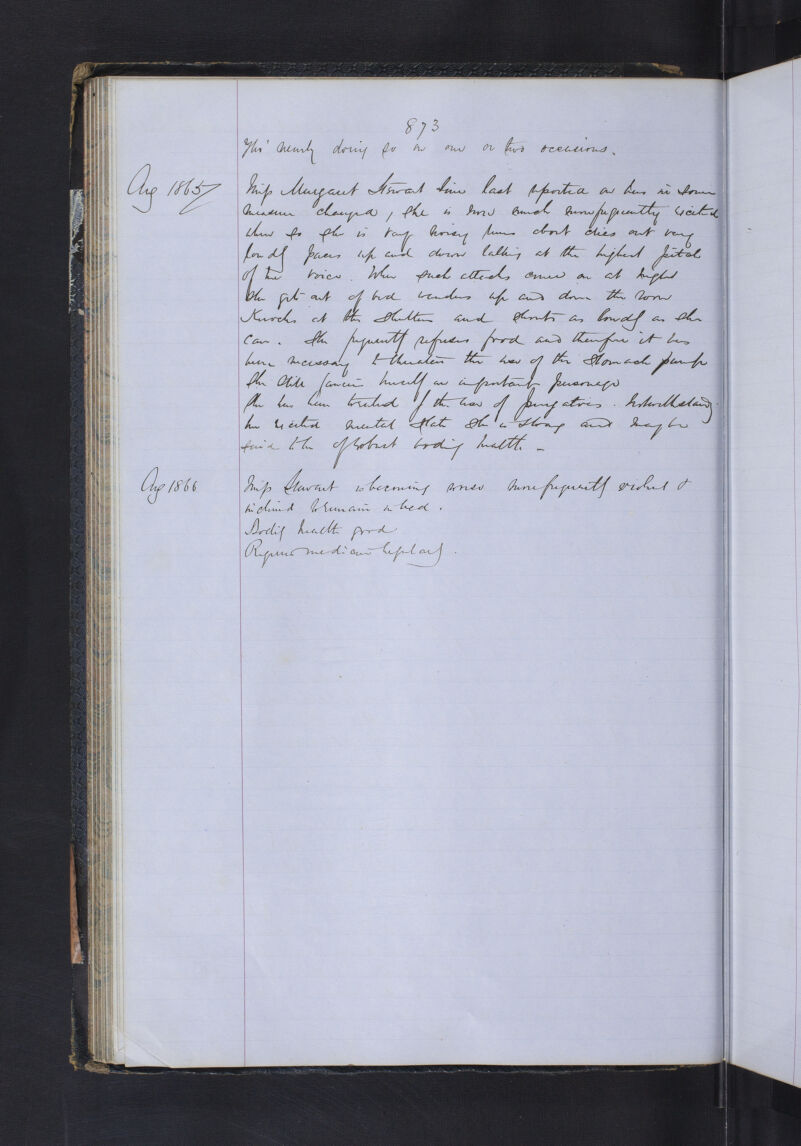 873
tho' nearly doing so on one or two occasions.
Aug 1865 Miss Margaret Stewart Since last reported on has in some
measure changed, She is now much more frequently excited
when so she is very noisy runs about cries out very
loudly paces up and down talking at the highest pitch
of her voice. When such attacks come on at night
She gets out of bed wanders up and down the room
Knocks at the Shutters and Shouts as loudly as she
can. She frequently refuses food and therefore it has
been necessary to threaten the use of the Stomach pump
She still fancies herself an important personage
She has been treated by the use of purgatives. Notwithstanding
her excited mental State She is strong and may be
said to be of robust bodily health. -
Aug 1866 Miss Stewart is becoming worse more frequently violent &
inclined to remain in bed.
Bodily health good
Requires medicine regularly.